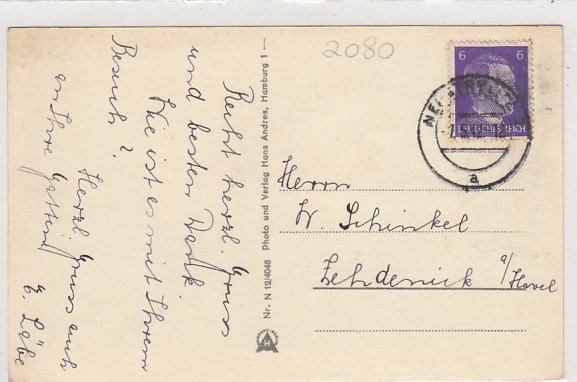 Recht herzl. Gruss
und besten Dank
Wie ist es mit Ihrem
Besuch?
Herzl. Gruss auch
an Ihre Gattin
G. Löbe
Nr. N 12/4046 Photo und Verlag Hans Andres, Hamburg 1
2080
6 6
DEUTSCHES REICH
a
Herrn
W. Schinkel
Zehdenick a/Havel